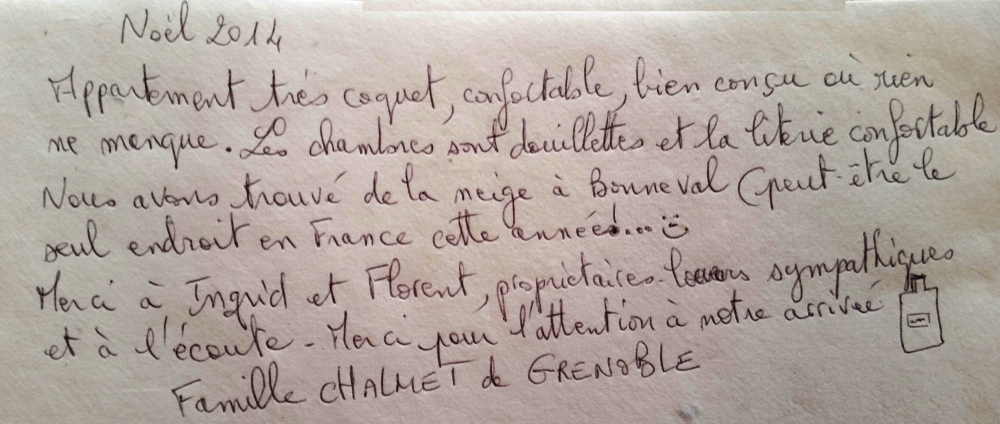 Noël 2014
Appartement très coquet, confortable, bien conçu où rien
ne manque. Les chambres sont douillettes et la literie confortable
Nous avons trouvé de la neige à Bonneval (peut-être le
seul endroit en France cette année!... :)
Merci à Ingrid et Florent, propriétaires-loueurs sympathiques
et à l'écoute - Merci pour l'attention à notre arrivée
Famille CHALMET de GRENOBLE